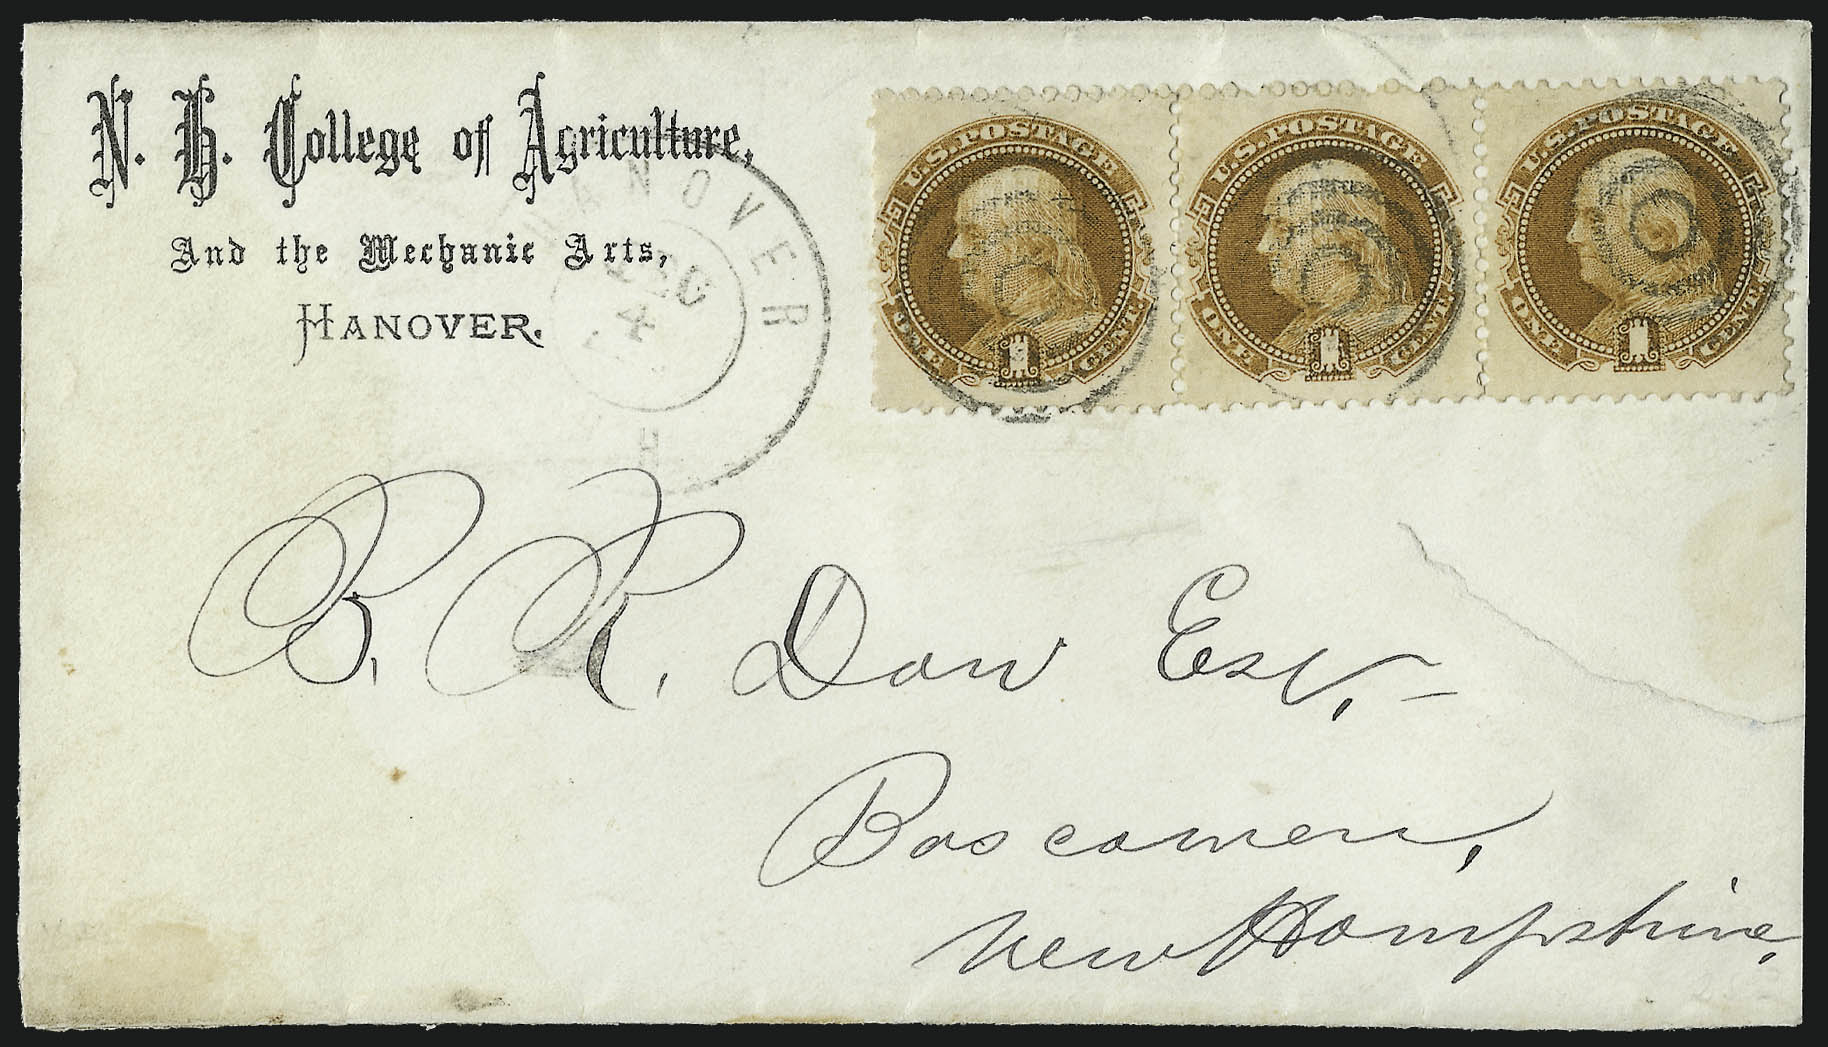 N. H. College of Agriculture,
And the Mechanic Arts,
HANOVER.
HANOVER
DEC
4
H
U.S. POSTAGE
ONE 1 CENT
U.S. POSTAGE
ONE 1 CENT
U.S. POSTAGE
ONE 1 CENT
B. R. Dow Esq.
Boscawen,
New Hampshire,